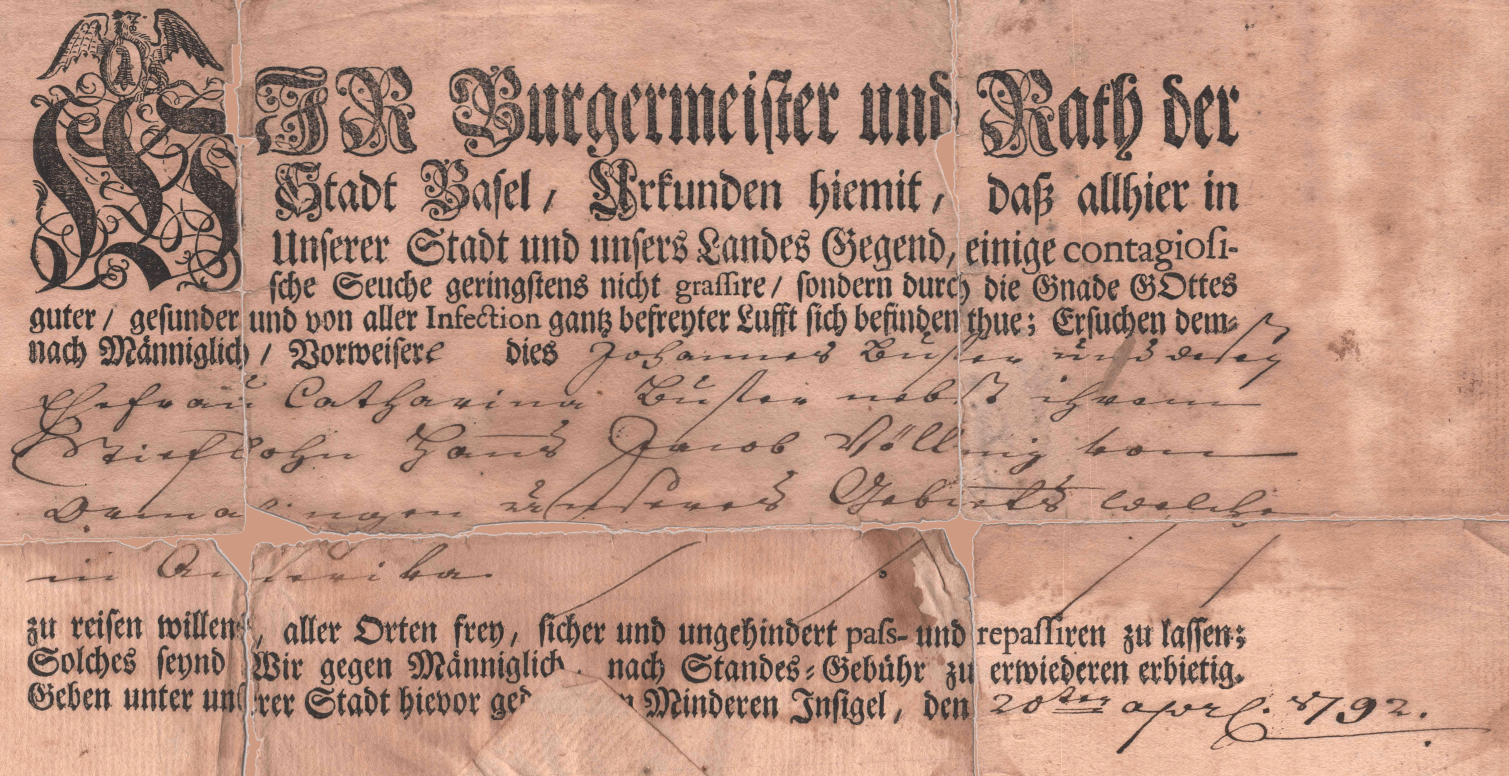 WIR Burgermeister und Rath der
Stadt Basel / Urkunden hiemit / daß allhier in
Unserer Stadt und unsers Landes Gegend, einige contagiosi-
sche Seuche geringstens nicht grassire / sondern durch die Gnade GOttes
guter / gesunder und von aller Infection gantz befreyter Lufft sich befinden thue; Ersuchen dem-
nach Männiglich / Vorweisere dies Johannes Buser und dessen
Ehefrau Catharina Buser nebst ihrem
Stiefsohn Hans Jacob Völlmig von
Ormalingen unseres Gebiets welche
in Amerika
zu reisen willens, aller Orten frey, sicher und ungehindert pass- und repassiren zu lassen;
Solches seynd Wir gegen Männiglich, nach Standes-Gebühr zu erwiederen erbietig.
Geben unter unserer Stadt hievor Minderen Insigel, den 20ten april. 1792.